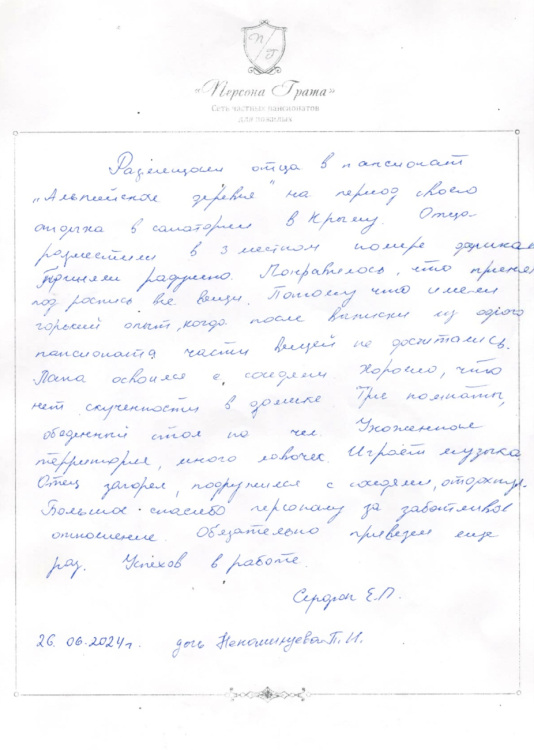 П/Г
«Персона Грата»
Сеть частных пансионатов
для пожилых
отца в пансионат
„Альпийская деревня" на период своего
отдыха в санатории в Крыму. Отца
разместили в 3 местном номере
Приняли радушно. Понравилось, что приняли
под роспись все вещи. Потому что имели
горький опыт, когда после выписки из одного
пансионата части вещей не досчитались.
Папа освоился с соседями. Хорошо, что
нет скученности в домике Три комнаты,
обеденный стол на чел. Ухоженная
территория, много лавочек. Играет музыка
Отец загорел, подружился с соседями, отдохнул.
Большое спасибо персоналу за заботливое
отношение. Обязательно привезем еще
раз. Успехов в работе.
Е.П.
26.06.2024г. дочь Непоминцева П.И.